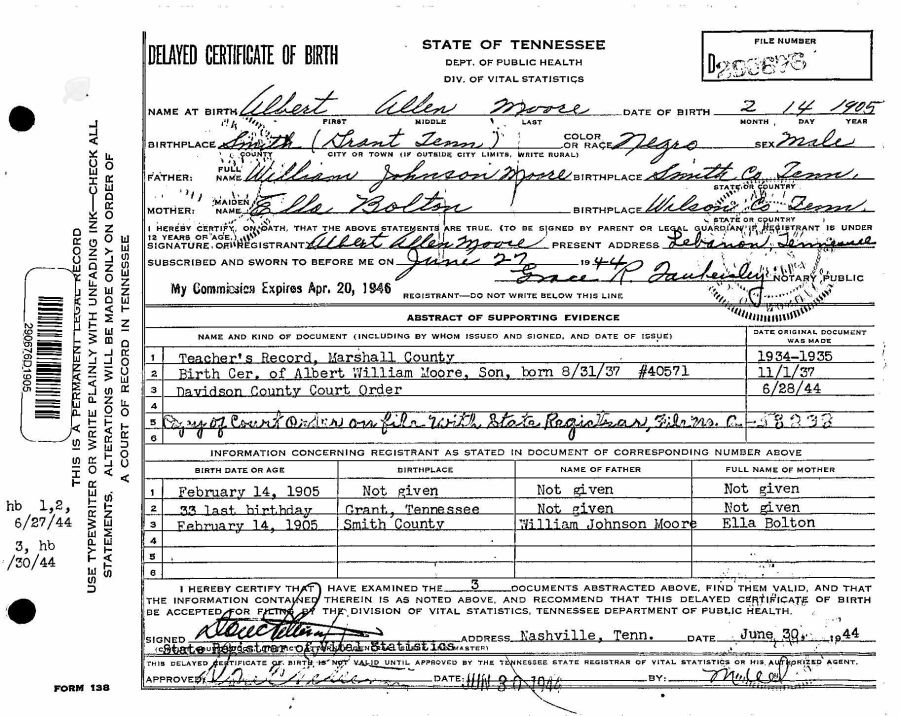 DELAYED CERTIFICATE OF BIRTH
STATE OF TENNESSEE
DEPT. OF PUBLIC HEALTH
DIV. OF VITAL STATISTICS
FILE NUMBER
D
NAME AT BIRTH Albert Allen Moore DATE OF BIRTH 2 14 1905
FIRST MIDDLE LAST MONTH DAY YEAR
BIRTHPLACE Smith (Grant Tenn) COLOR OR RACE Negro SEX Male
COUNTY CITY OR TOWN (IF OUTSIDE CITY LIMITS, WRITE RURAL)
FATHER: FULL NAME William Johnson Moore BIRTHPLACE Smith Co Tenn.
STATE OR COUNTRY
MOTHER: MAIDEN NAME Ella Bolton BIRTHPLACE Wilson Co Tenn.
STATE OR COUNTRY
I HEREBY CERTIFY, ON OATH, THAT THE ABOVE STATEMENTS ARE TRUE. (TO BE SIGNED BY PARENT OR LEGAL GUARDIAN IF REGISTRANT IS UNDER
12 YEARS OF AGE.)
SIGNATURE OF REGISTRANT Albert Allen Moore PRESENT ADDRESS Lebanon, Tennessee
SUBSCRIBED AND SWORN TO BEFORE ME ON June 27 1944 Grace R. NOTARY PUBLIC
My Commission Expires Apr. 20, 1946
REGISTRANT—DO NOT WRITE BELOW THIS LINE
ABSTRACT OF SUPPORTING EVIDENCE
NAME AND KIND OF DOCUMENT (INCLUDING BY WHOM ISSUED AND SIGNED, AND DATE OF ISSUE) DATE ORIGINAL DOCUMENT WAS MADE
1 Teacher's Record, Marshall County 1934-1935
2 Birth Cer. of Albert William Moore, Son, born 8/31/37 #40571 11/1/37
3 Davidson County Court Order 6/28/44
4
5 Copy of Court Order on file with State Registrar, File No. C-58233
6
INFORMATION CONCERNING REGISTRANT AS STATED IN DOCUMENT OF CORRESPONDING NUMBER ABOVE
BIRTH DATE OR AGE BIRTHPLACE NAME OF FATHER FULL NAME OF MOTHER
1 February 14, 1905 Not given Not given Not given
2 33 last birthday Grant, Tennessee Not given Not given
3 February 14, 1905 Smith County William Johnson Moore Ella Bolton
4
5
6
I HEREBY CERTIFY THAT I HAVE EXAMINED THE 3 DOCUMENTS ABSTRACTED ABOVE, FIND THEM VALID, AND THAT
THE INFORMATION CONTAINED THEREIN IS AS NOTED ABOVE, AND RECOMMEND THAT THIS DELAYED CERTIFICATE OF BIRTH
BE ACCEPTED FOR FILING BY THE DIVISION OF VITAL STATISTICS, TENNESSEE DEPARTMENT OF PUBLIC HEALTH.
SIGNED ADDRESS Nashville, Tenn. DATE June 30, 1944
State Registrar of Vital Statistics
THIS DELAYED CERTIFICATE OF BIRTH IS NOT VALID UNTIL APPROVED BY THE TENNESSEE STATE REGISTRAR OF VITAL STATISTICS OR HIS AUTHORIZED AGENT.
APPROVED: DATE: JUN 30 1944 BY:
FORM 138
THIS IS A PERMANENT LEGAL RECORD
USE TYPEWRITER OR WRITE PLAINLY WITH UNFADING INK—CHECK ALL
STATEMENTS. ALTERATIONS WILL BE MADE ONLY ON ORDER OF
A COURT OF RECORD IN TENNESSEE
290676D1905
hb 1,2,
6/27/44
3, hb
/30/44